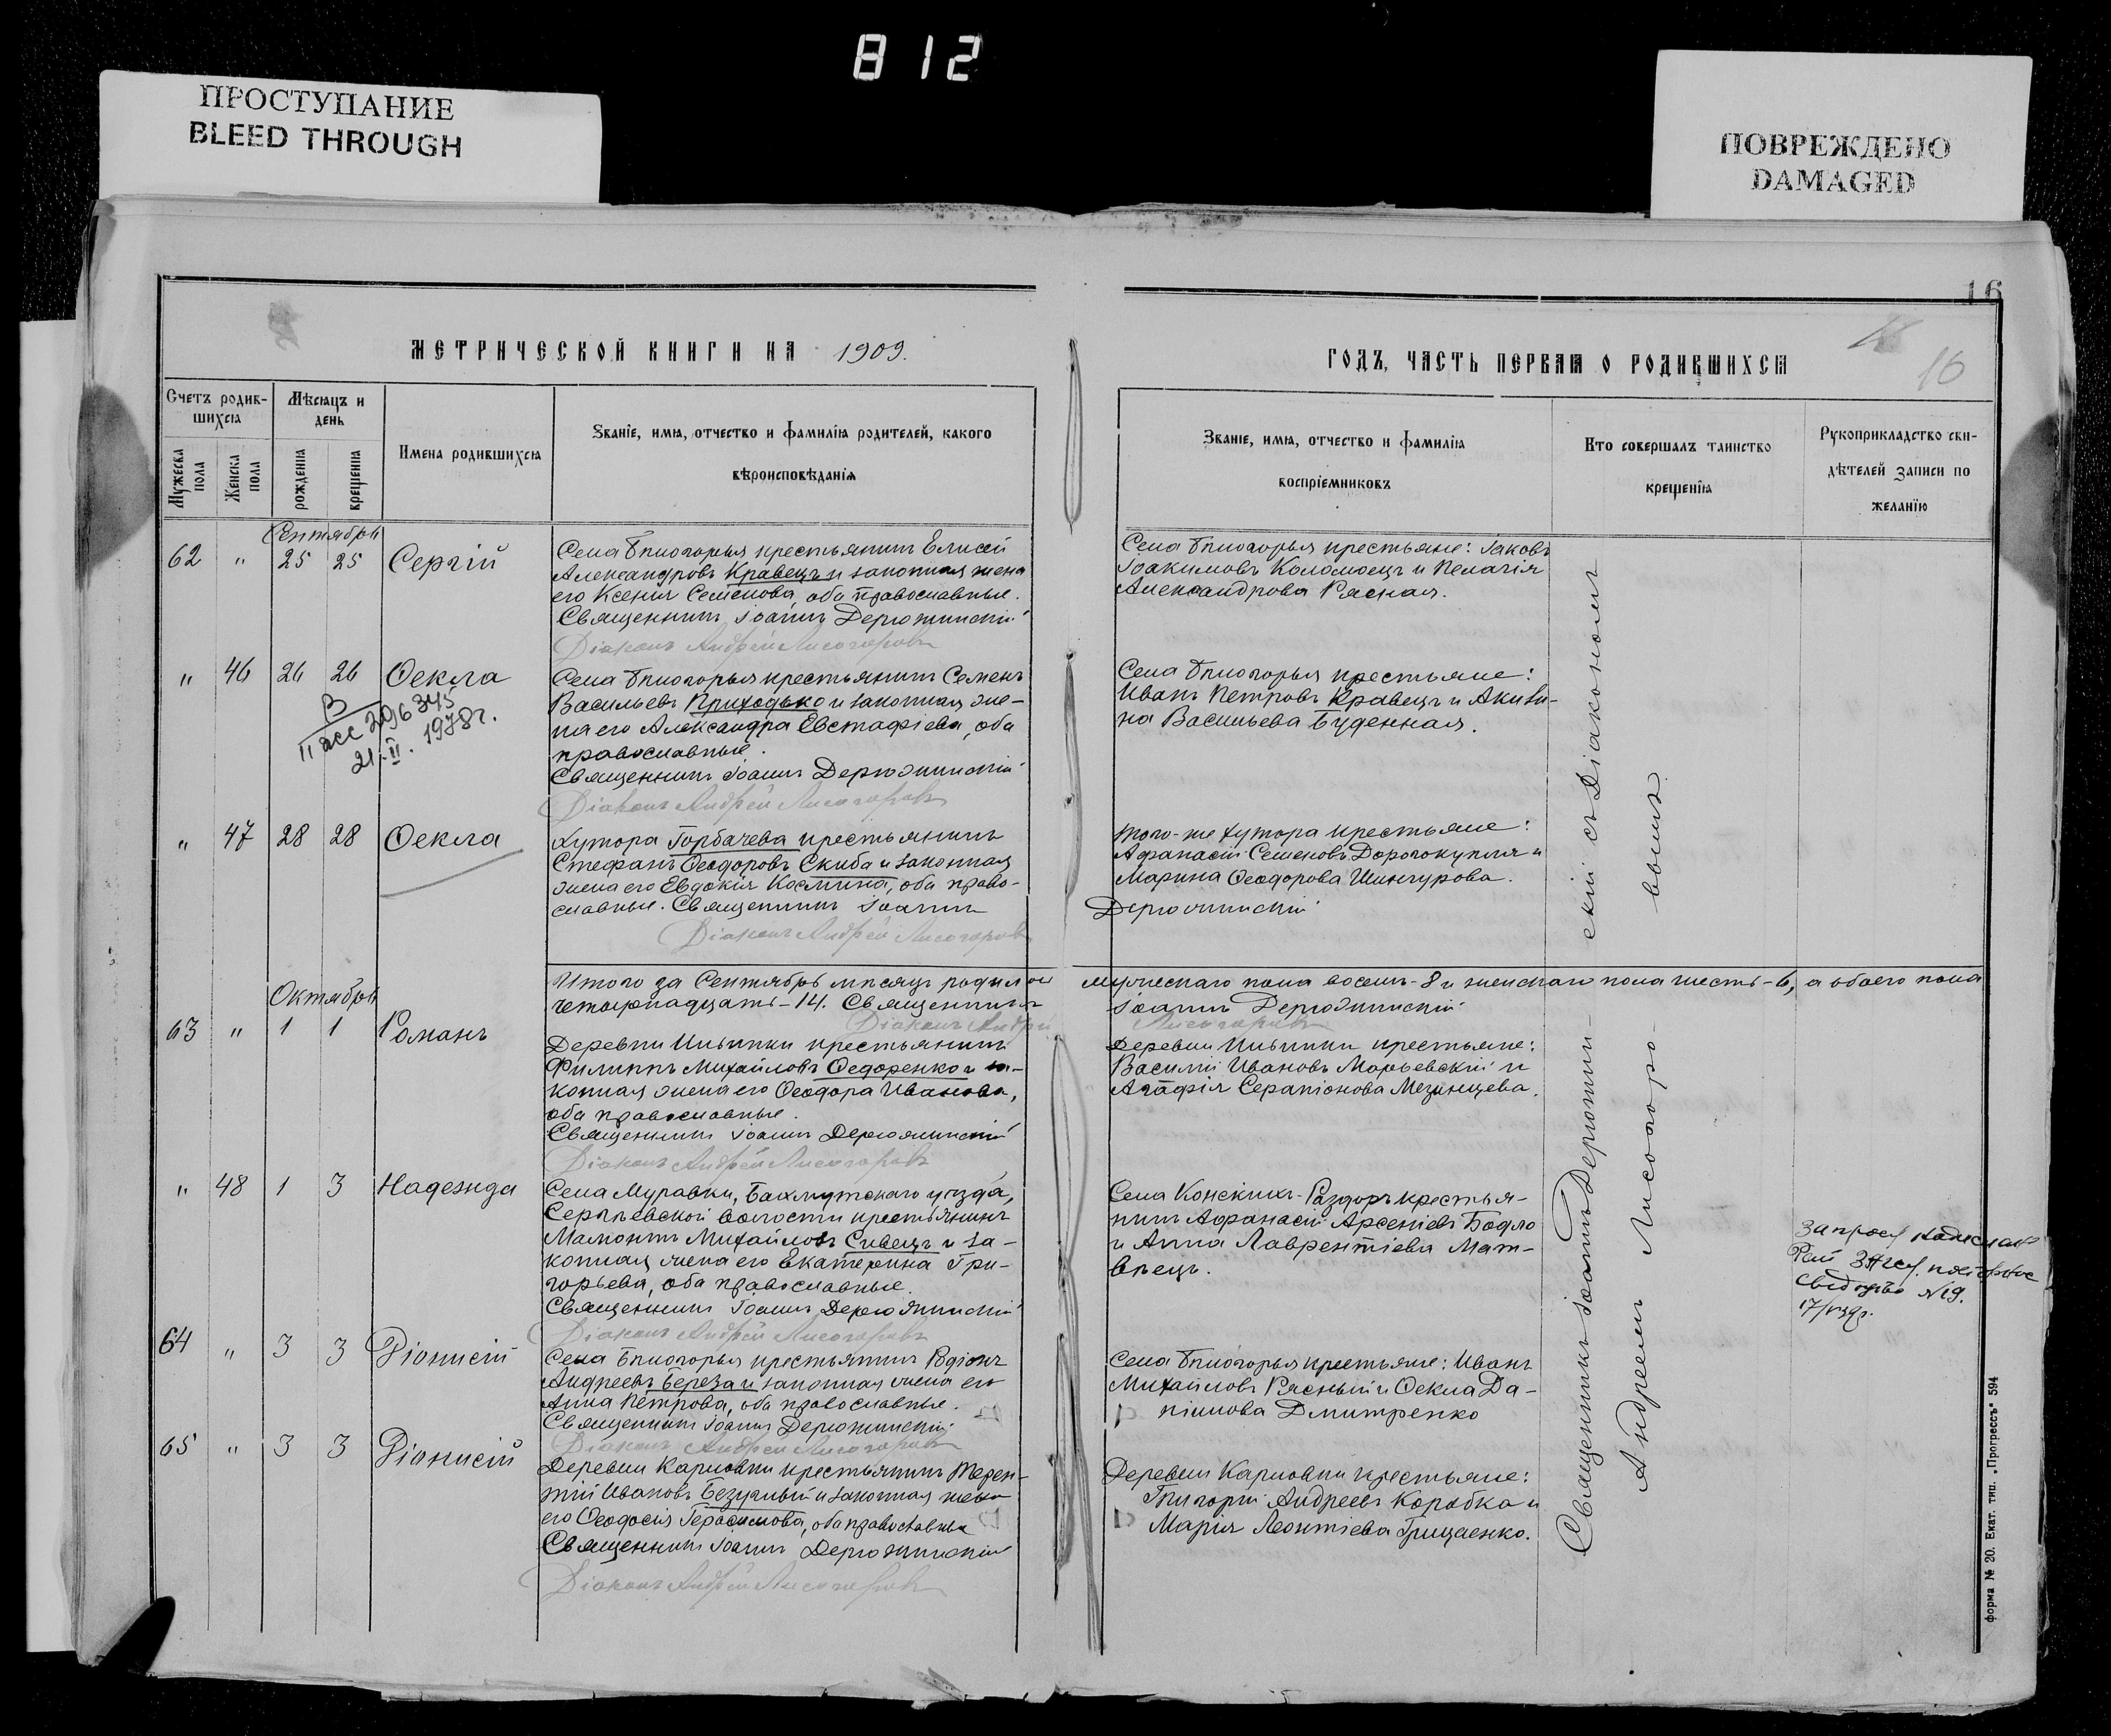 812
ПРОСТУПАНИЕ
BLEED THROUGH
ПОВРЕЖДЕНО
DAMAGED
16
16
МЕТРИЧЕСКОЙ КНИГИ НА 1909.
ГОДЪ, ЧАСТЬ ПЕРВАЯ О РОДИВШИХСЯ
Счетъ родив-
шихся
Мужеска пола
Женска пола
Мѣсяцъ и
день
рожденія
крещенія
Имена родившихся
Званіе, имя, отчество и фамилія родителей, какого
вѣроисповѣданія
Званіе, имя, отчество и фамилія
воспріемниковъ
Кто совершалъ таинство
крещенія
Рукоприкладство сви-
дѣтелей записи по
желанію
Сентябрь
62 " 25 25 Сергій
Села Бѣлогорья крестьянинъ Елисей
Александровъ Кравецъ и законная жена
его Ксенія Семенова, оба православные.
Священникъ Іоаннъ Держинскій
Діаконъ Андрей Лисогоровъ
Села Бѣлогорья крестьяне: Іаковъ
Іоакимовъ Коломоецъ и Пелагія
Александрова Рясная.
" 46 26 26 Ѳекла
В
II асс 296345
21.II. 1978г.
Села Бѣлогорья крестьянинъ Семенъ
Васильевъ Приходько и законная же-
на его Александра Евстафіева, оба
православные.
Священникъ Іоаннъ Держинскій
Діаконъ Андрей Лисогоровъ
Села Бѣлогорья крестьяне:
Иванъ Петровъ Кравецъ и Акили-
на Васильева Буденная.
" 47 28 28 Ѳекла
Хутора Горбачева крестьянинъ
Стефанъ Ѳеодоровъ Скиба и законная
жена его Евдокія Космина, оба право-
славные. Священникъ Іоаннъ
Діаконъ Андрей Лисогоровъ
того-же хутора крестьяне:
Афанасій Семеновъ Дорогокупля и
Марина Ѳеодорова Шингурова.
Держинскій
Итого за Сентябрь мѣсяцъ родилось мужескаго пола восемь-8 и женскаго пола шесть-6, а обоего пола
четырнадцать-14. Священникъ Іоаннъ Держинскій
Діаконъ Андрей Лисогоровъ
Октябрь
63 " 1 1 Романъ
Деревни Ильинки крестьянинъ
Филиппъ Михайловъ Ѳедоренко и за-
конная жена его Ѳеодора Иванова,
оба православные.
Священникъ Іоаннъ Держинскій
Діаконъ Андрей Лисогоровъ
Деревни Ильинки крестьяне:
Василій Ивановъ Марьевскій и
Агафія Серапіонова Мезинцева.
" 48 1 3 Надежда
Села Муравки, Бахмутскаго уѣзда,
Сергѣевской волости крестьянинъ
Мамонтъ Михайловъ Сивецъ и за-
конная жена его Екатерина Гри-
горьева, оба православные.
Священникъ Іоаннъ Держинскій
Діаконъ Андрей Лисогоровъ
Села Конскихъ-Раздоръ крестья-
нинъ Афанасій Арсеніевъ Бодло
и Анна Лаврентіева Мат-
вѣецъ.
Свідоцтво №19.
64 " 3 3 Діонисій
Села Бѣлогорья крестьянинъ Родіонъ
Андреевъ Береза и законная жена его
Анна Петрова, оба православные.
Священникъ Іоаннъ Держинскій
Діаконъ Андрей Лисогоровъ
Села Бѣлогорья крестьяне: Иванъ
Михайловъ Рясный и Ѳекла Да-
ніилова Дмитренко
65 " 3 3 Діонисій
Деревни Карловки крестьянинъ Терен-
тій Ивановъ Безуглый и законная жена
его Ѳеодосія Герасимова, оба православные
Священникъ Іоаннъ Держинскій
Діаконъ Андрей Лисогоровъ
Деревни Карловки крестьяне:
Григорій Андреевъ Коробка и
Марія Леонтіева Грищенко.
Священникъ Іоаннъ Держин-
скій съ Діакономъ
Андреемъ Лисогоро-
вымъ.
форма № 20. Екат. тип. „Прогрессъ" 594